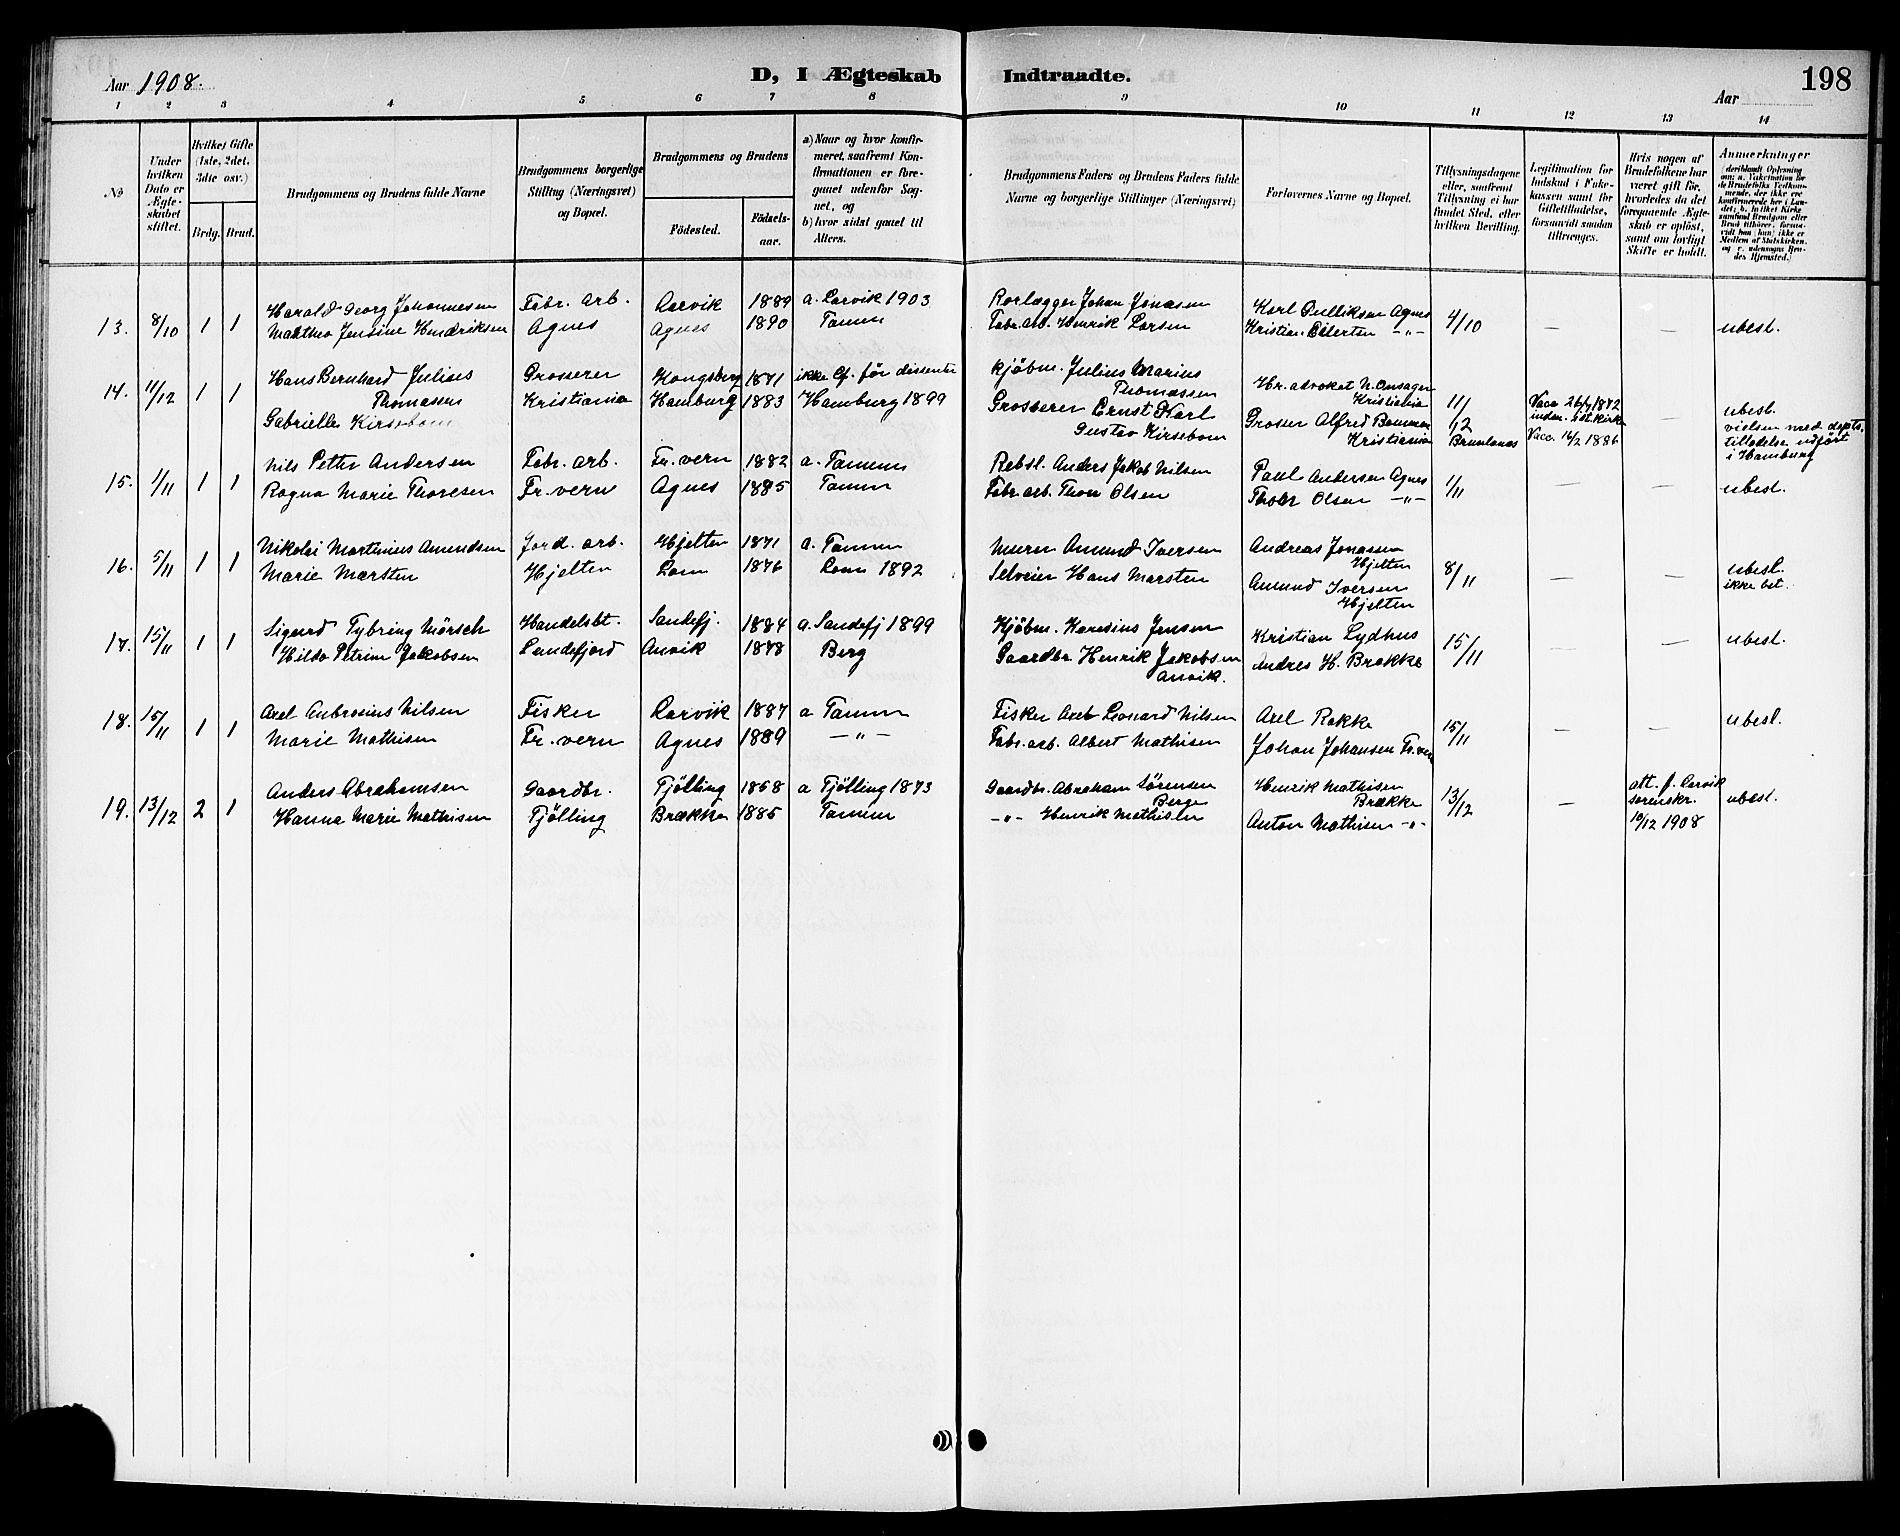 Aar 1908.
D, I Ægteskab Indtraadte.
198
Aar
1 2 3 4 5 6 7 8 9 10 11 12 13 14
No
Under hvilken Dato er Ægteskabet stiftet.
Hvilket Gifte (1ste, 2det, 3die osv.)
Brdg. Brud.
Brudgommens og Brudens fulde Navne
Brudgommens borgerlige Stilling (Næringsvei) og Bopæl.
Brudgommens og Brudens
Födested.
Födselsaar.
a) Naar og hvor konfirmeret, saafremt Konfirmationen er foregaaet udenfor Sognet, og
b) hvor sidst gaaet til Alters.
Brudgommens Faders og Brudens Faders fulde Navne og borgerlige Stillinger (Næringsvei)
Forlovernes Navne og Bopæl.
Tillysningsdagene eller, saafremt Tillysning ei har fundet Sted, efter hvilken Bevilling.
Legitimation for Indskud i Enkekassen samt for Giftetilladelse, forsaavidt saadan tiltrænges.
Hvis nogen af Brudefolkene har været gift før, hvorledes da det foregaaende Ægteskab er oplöst, samt om lovligt Skifte er holdt.
Anmerkninger
Harald Georg Johannesen Fabr. arb. Larvik 1889 a. Larvik 1903 Rørlægger Johan Jonasen Karl Gulliksen Agnes
13. 8/10 1 1 Marthea Jensine Hendriksen Agnes Agnes 1890 Tanum Fabr. arb. Henrik Larsen Kristian Eilertsen -"- 4/10 — — ubest.
Hans Bernhard Julius Grosserer Kongsberg 1871 ikke Cf. før dissenter Kjøbm. Julius Marius
14. 11/12 1 1 Thomassen Kristiania Hamburg 1883 Hamburg 1899 Thomassen Hr. advokat N. Onsager Kristiania 11/12 Brunlanes
Gabrielle Kirsebom Grosserer Ernst Karl Gustav Kirsebom Grosser Alfred Kristiania
Vacc. 1872
Vacc. 16/2 1886
ubest.
vielsen med depts. tilladelse udført i Hamburg
Nils Petter Andersen Fabr. arb. Fr. vern 1882 a. Tanum Rebsl. Anders Jakob Nilsen Paul Andersen Agnes
15. 1/11 1 1 Ragna Marie Thoresen Fr. vern Agnes 1885 Tanum Fabr. arb. Thor Olsen Thor Olsen -"- 1/11 — — ubest.
Nikolai Martinius Amundsen Jord. arb. Hjelten 1871 a. Tanum Murer Amund Iversen Andreas Jonassen Hjelten
16. 5/11 1 1 Marie Marsten Hjelten Lom 1876 Lom 1892 Selveier Hans Marsten Amund Iversen Hjelten 8/11 — — ubest. ikke bet.
Sigurd Tybring Mörsch Handelsbt. Sandefj. 1884 a. Sandefj 1899 Kjøbm. Karesius Jensen Kristian Lydhus
17. 15/11 1 1 Hilda Petrine Jakobsen Sandefjord Anvik 1878 Berg Gaardbr. Henrik Jakobsen Anvik. Andres H. Brække 15/11 — — ubest.
Axel Ambrosius Nilsen Fisker Larvik 1887 a Tanum Fisker Axel Leonard Nilsen Axel Rakke
18. 15/11 1 1 Marie Mathisen Fr. vern Agnes 1889 -"- Fabr. arb. Albert Mathisen Johan Johansen Fr. vern 15/11 — — ubesl.
Anders Abrahamsen Gaardbr. Tjölling 1858 a Tjölling 1873 Gaardbr. Abraham Sørensen Berge Henrik Mathisen Brække
19. 13/12 2 1 Hanna Marie Mathisen Tjölling Brække 1885 Tanum -"- Henrik Mathisen Anton Mathisen -"- 13/12 — att. f. Larvik sorenskr. 10/12 1908 ubest.